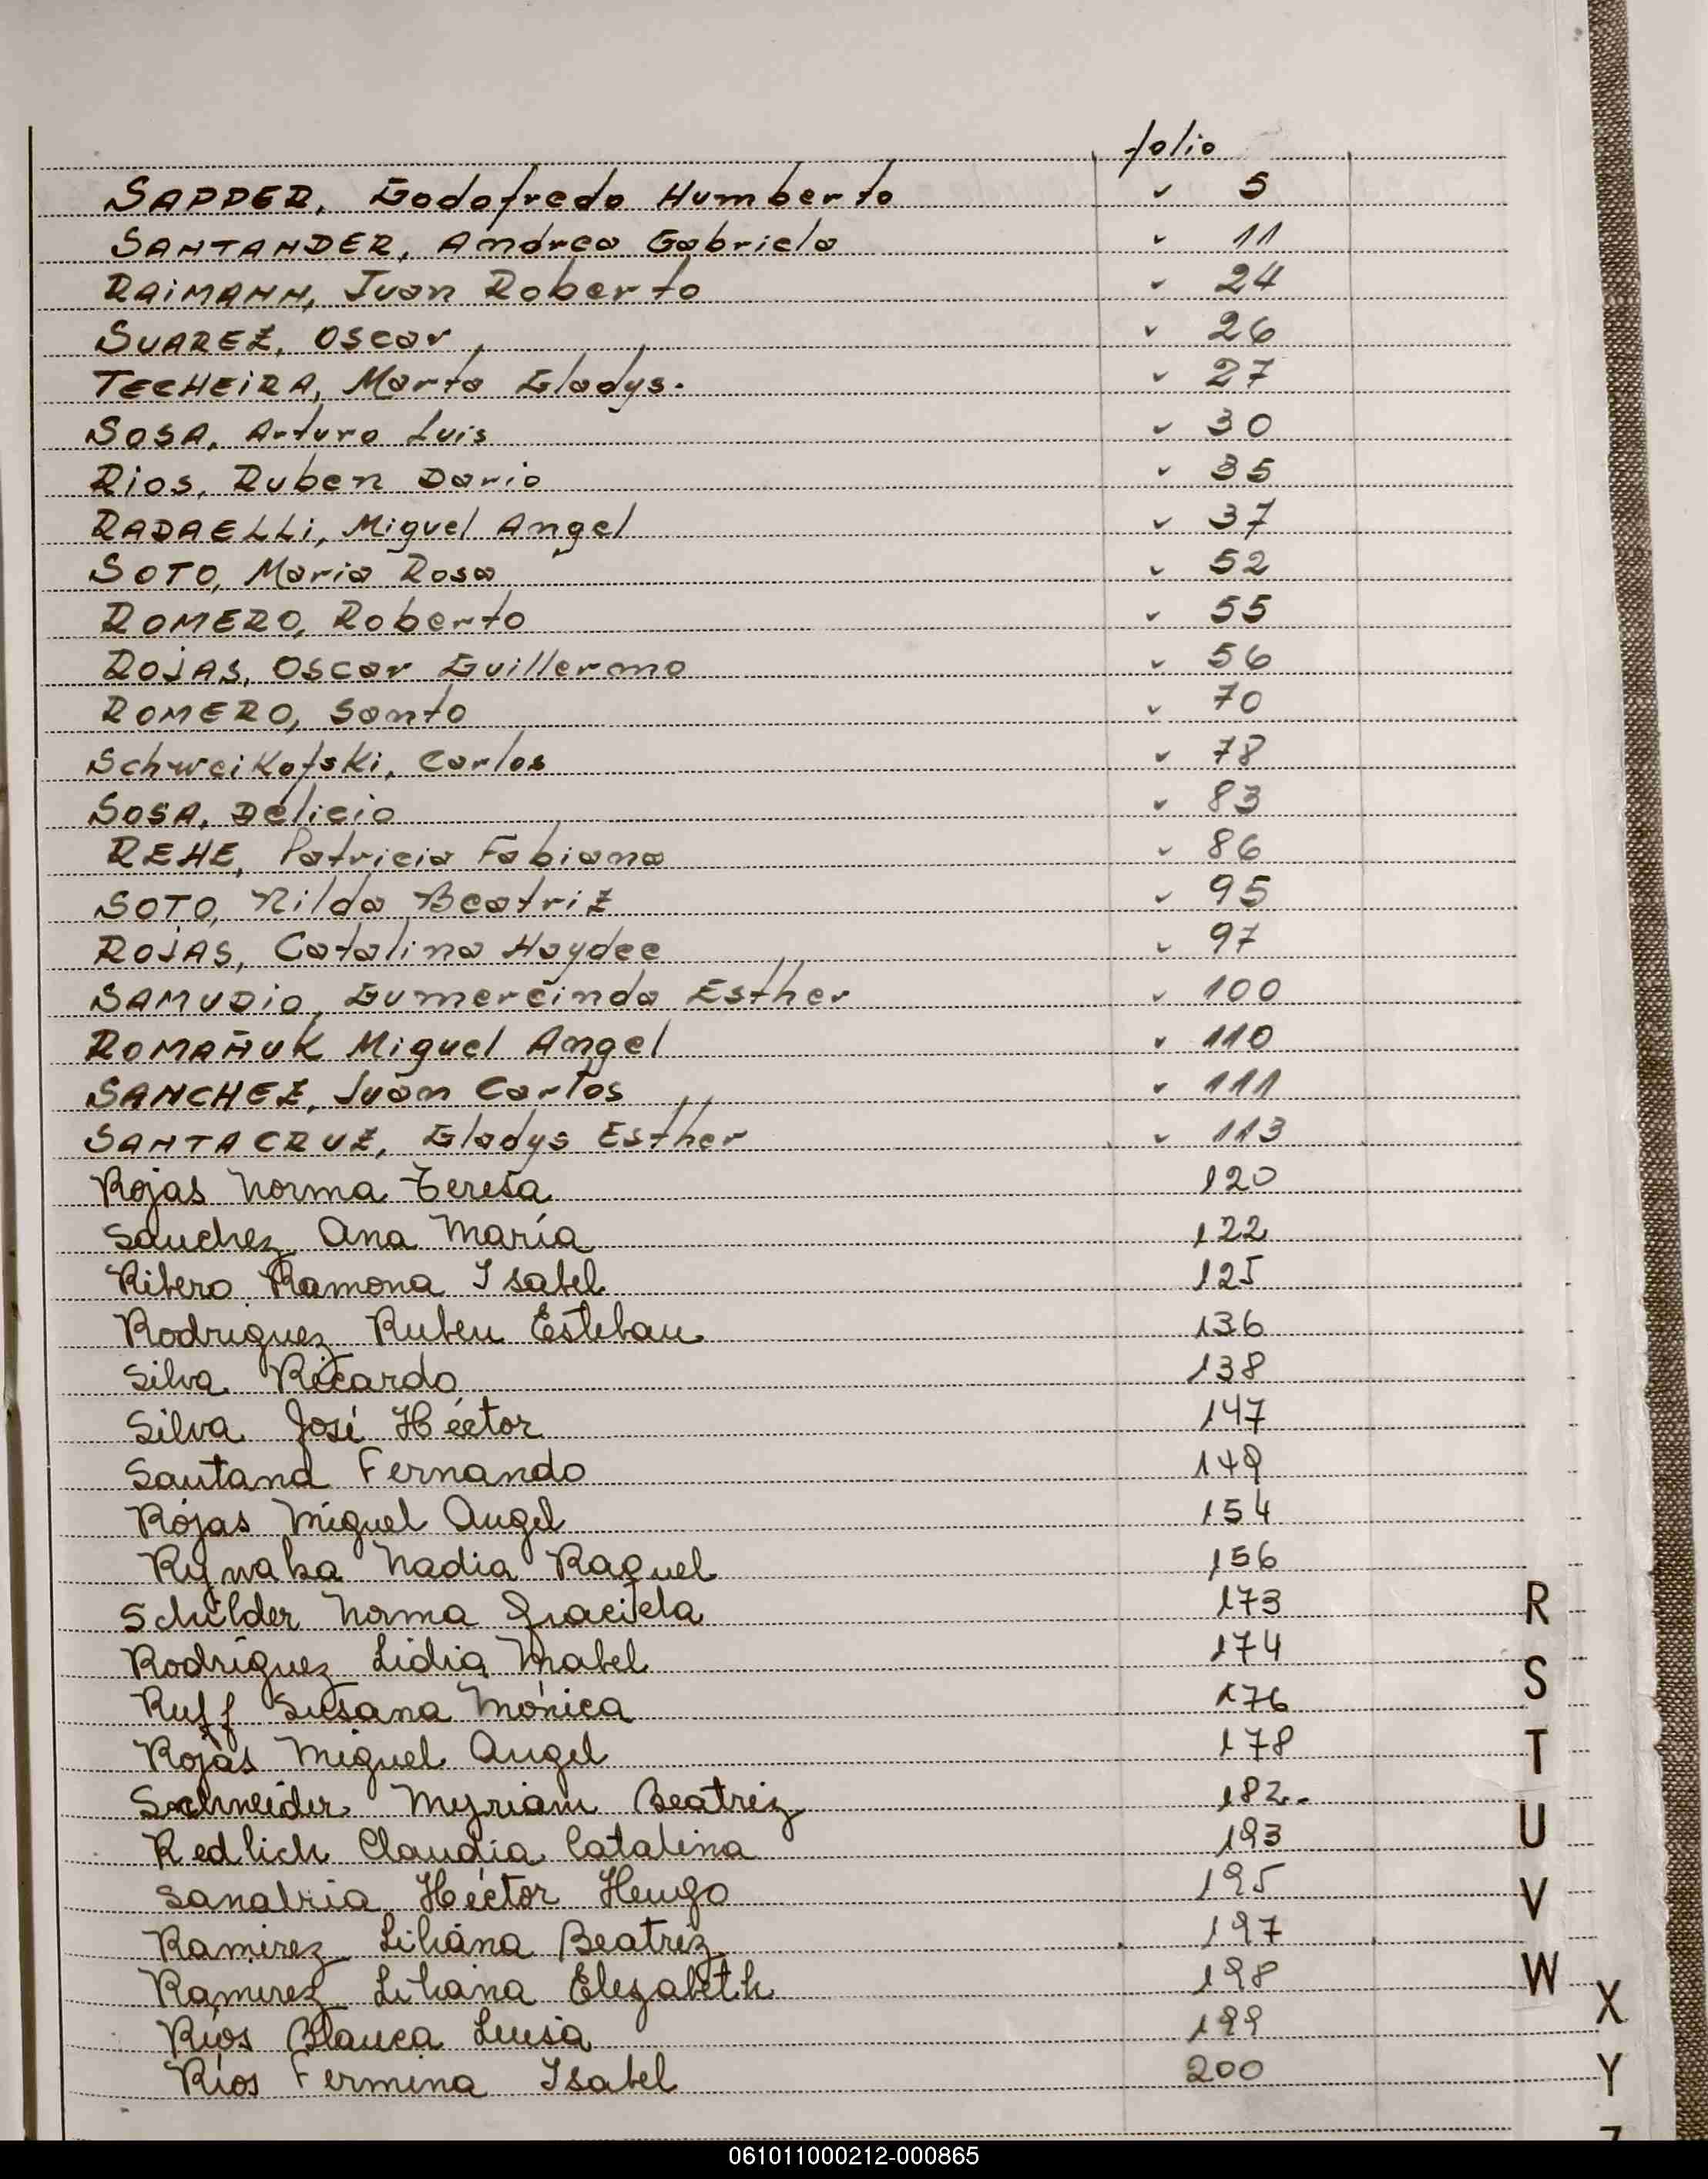 folio
SAPPER, Godofredo Humberto ✓ 5
SANTANDER, Andrea Gabriela ✓ 11
RAIMANN, Juan Roberto ✓ 24
SUAREZ, Oscar ✓ 26
TECHEIRA, Marta Gladys. ✓ 27
SOSA, Arturo Luis ✓ 30
Rios, Ruben Dario ✓ 35
RADAELLI, Miguel Angel ✓ 37
SOTO, Maria Rosa ✓ 52
ROMERO, Roberto ✓ 55
ROJAS, Oscar Guillermo ✓ 56
ROMERO, Santo ✓ 70
Schweikofski, Carlos ✓ 78
SOSA, Delicia ✓ 83
REHE, Patricia Fabiana ✓ 86
SOTO, Nilda Beatriz ✓ 95
ROJAS, Catalina Haydee ✓ 97
SAMUDIO, Gumercinda Esther ✓ 100
ROMAÑUK Miguel Angel ✓ 110
SANCHEZ, Juan Carlos ✓ 111
SANTA CRUZ, Gladys Esther ✓ 113
Rojas Norma Teresa 120
Sanchez Ana María 122
Ribero Ramona Isabel 125
Rodriguez Ruben Esteban 136
Silva Ricardo 138
Silva José Héctor 147
Santana Fernando 149
Rojas Miguel Angel 154
Rywaka Nadia Raquel 156
Schilder Norma Graciela 173
Rodríguez Lidia Mabel 174
Ruff Susana Mónica 176
Rojas Miguel Angel 178
Schneider Myriam Beatriz 182..
Redlich Claudia Catalina 193
Sanabria Héctor Hugo 195
Ramirez Liliana Beatriz 197
Ramirez Liliana Elizabeth 198
Ríos Blanca Luisa 199
Ríos Fermina Isabel 200
R
S
T
U
V
W
X
Y
Z
061011000212-000865